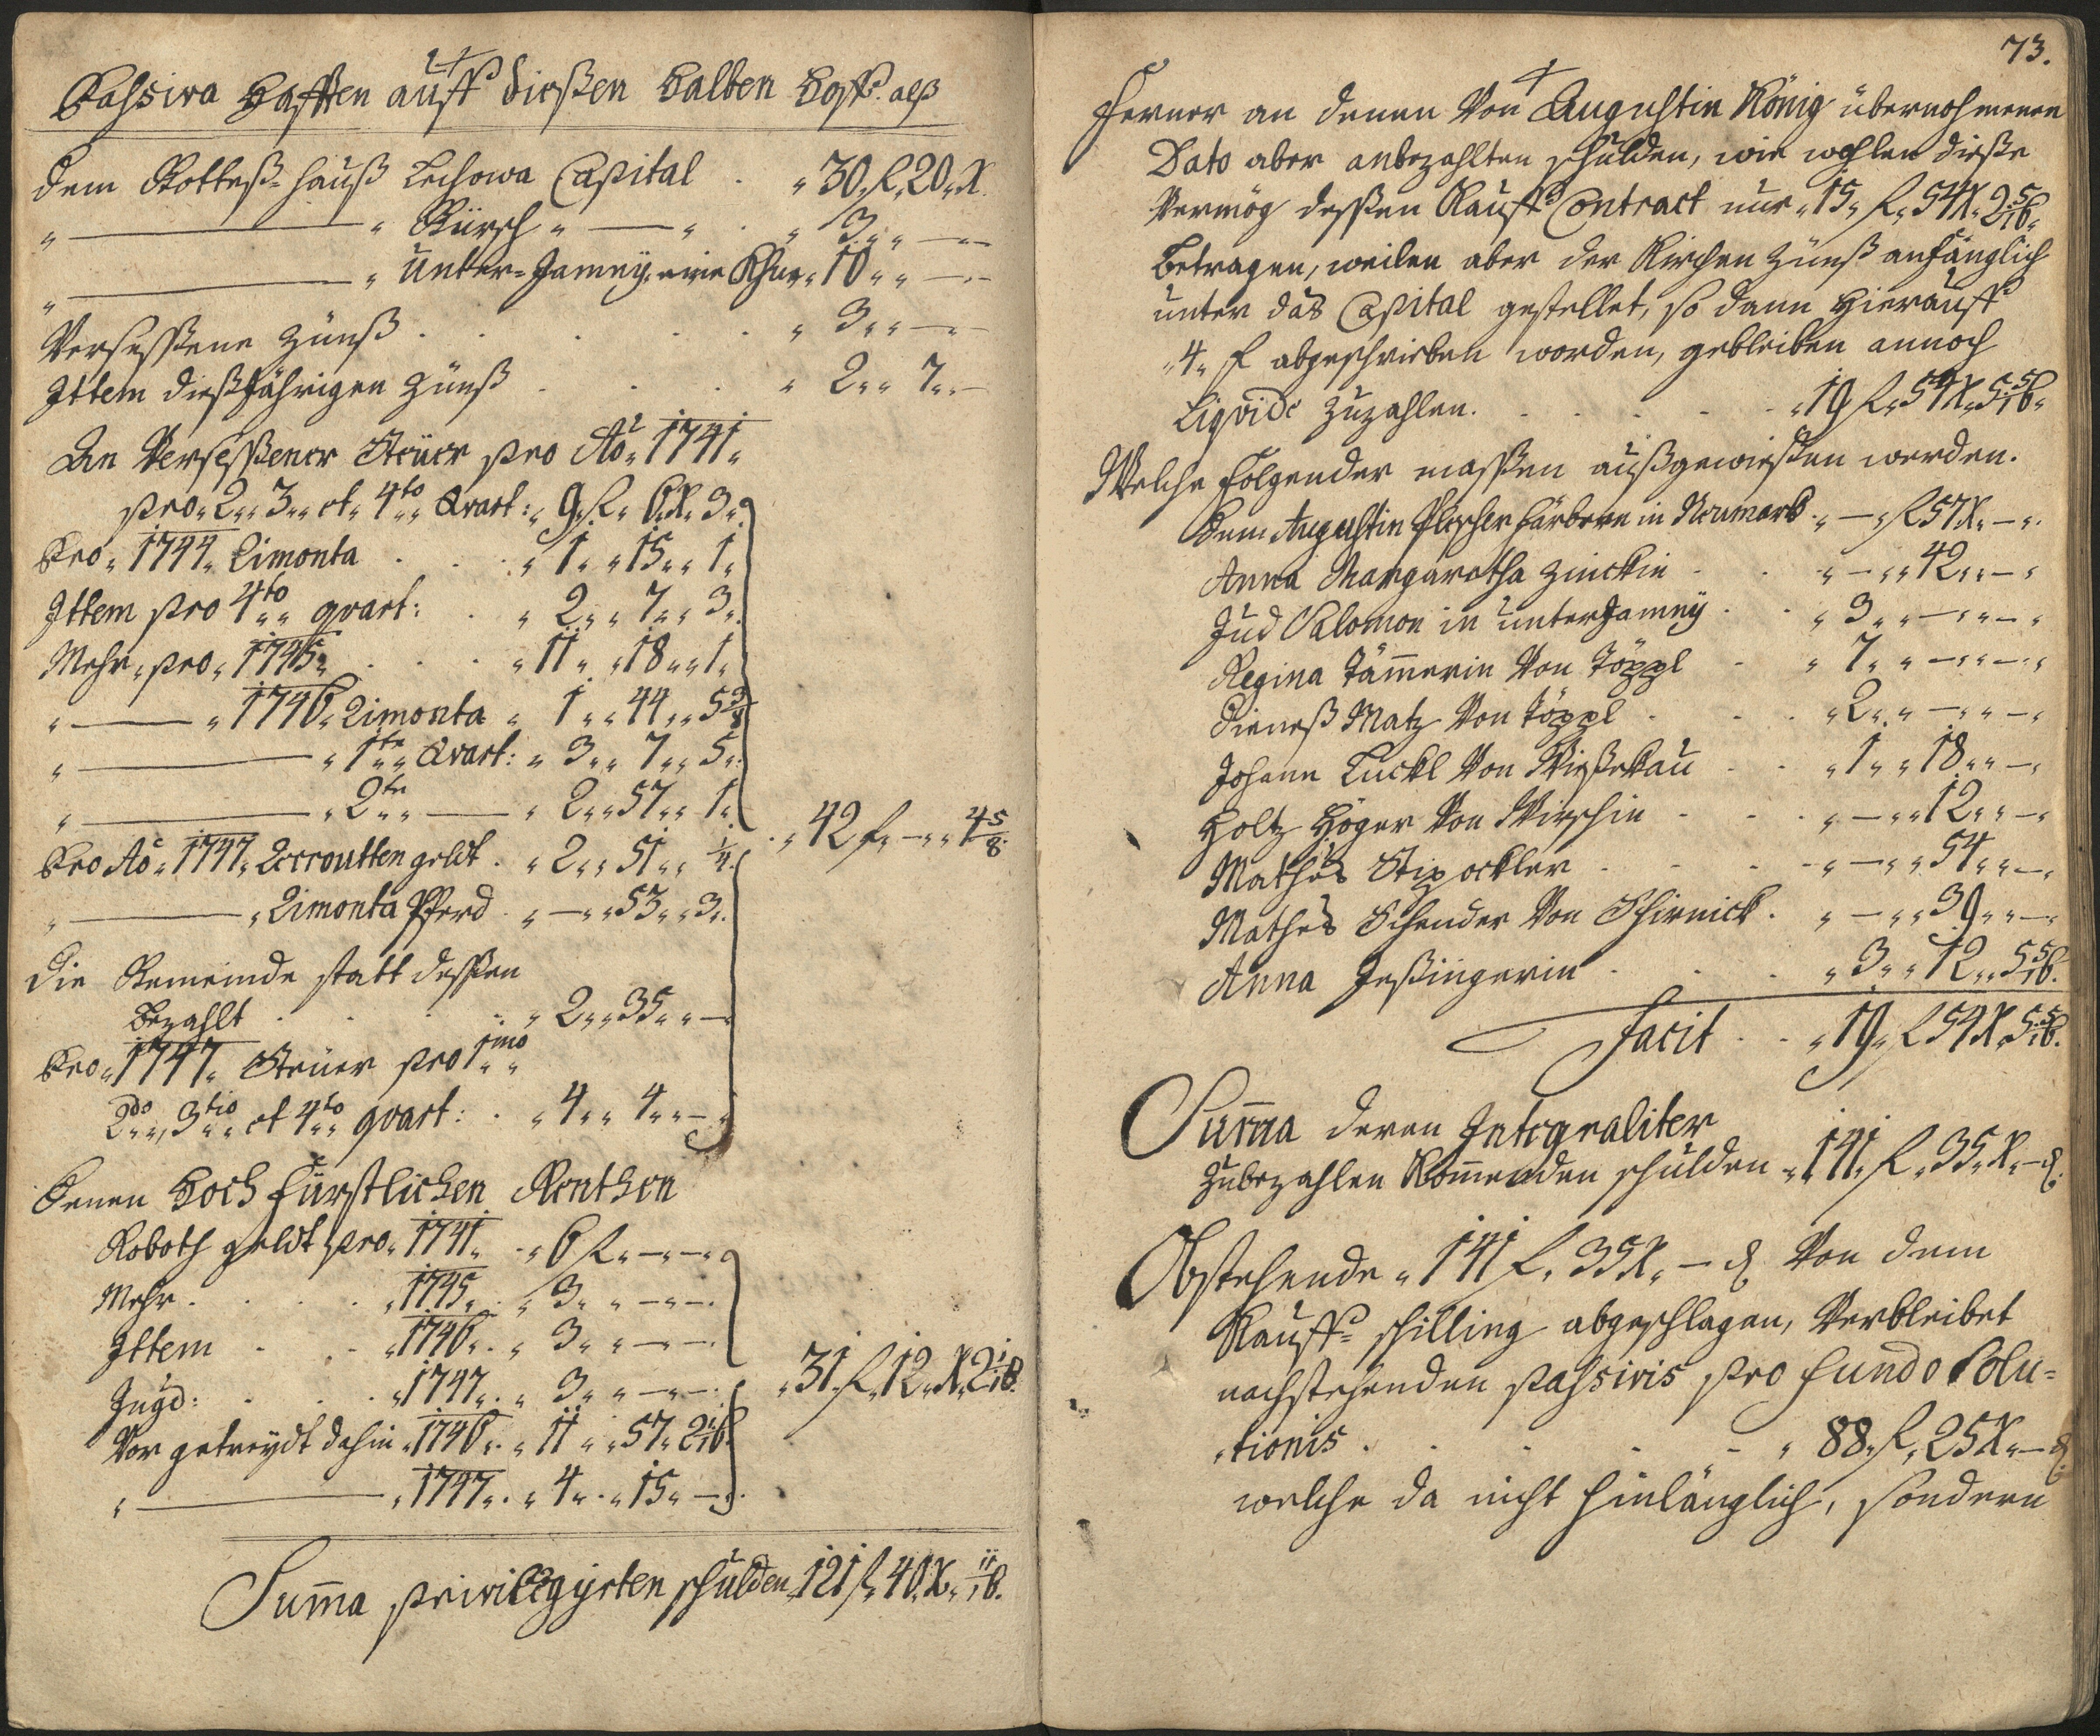 Passiva Hafften auff diesen Halben Hoff. alß
dem Gotteß-Hauß Lechowa Capital . „ 30. f. 20. X.
„ ——— „ Kürsch „ — „ . „ 3. „ „ —
„ ——— „ Unter-Jamnÿ, eine Khue „ 10 „ „ —
Versessene Zünß . . . . „ 3 „ „ —
Ittem dießJährigen Zünß . . . „ 2 „ „ 7 „ —
An Versessener Steüer pro Aõ „ 1741 „
pro „ 2 „ „ 3 „ „ et „ 4to „ Qvart: „ 9. f. 6. X. 3 „
Pro „ 1744 „ Rimonta . . „ 1 „ „ 15 „ „ 1 „
Ittem pro 4to „ qvart: . „ 2 „ „ 7 „ „ 3 „
Mehr „ pro „ 1745 „ . . . „ 11 „ „ 18 „ „ 1 „
„ —— „ 1746 „ Rimonta „ 1 „ „ 44 „ „ 5 3/8
„ ——— „ 1te „ Qvart: „ 3 „ „ 7 „ „ 5 „
„ ——— „ 2te „ —— „ 2 „ „ 57 „ „ 1 „
Pro Aõ „ 1747 „ Recroutten geldt . „ 2 „ „ 51 „ „ 1/4 . „ 42 f. — „ „ 4 5/8
„ ——— „ Rimonta Pferd . „ — „ „ 53 „ „ 3 „
Die Gemeinde statt dessen
Bezahlt . . . . „ 2 „ „ 35 „ „ —
Pro „ 1747 „ Steüer pro 1mo „
2do „ „ 3tio „ et 4to „ qvart: . „ 4 „ „ 4 „ „ —
Denen Hoch Fürstlichen Renthen
Roboth geldt pro „ 1741 „ . „ 6 f. — „ — „
Mehr . . . „ 1745 „ . „ 3 „ „ — „ —
Ittem . . „ 1746 „ . „ 3 „ „ — „ —
Jngd: . . . „ 1747 „ . „ 3 „ „ — „ — „ 31. f. 12. X. 2 1/16.
Vor getreÿdt dahin „ 1746 „ . „ 11 „ „ 57 „ 2 1/16
„ ——— „ 1747 „ . „ 4 „ „ 15 „ —
Sum̄a privilegyrten schulden „ 121 f. 40. X. 11/16.
73.
Ferner an denen Von Augustin König übernohmenen
Dato aber anbezahlten schulden, wie wohlen dieße
Vermög dessen Kauff Contract nur „ 15 „ f. 54 X. 2 5/16 „
Betragen, weilen aber der Kirchen Zünß anfänglich
unter das Capital gestellet, so dann hierauff
„ 4 „ f abgeschrieben worden, gebleiben annoch
Liqvide Zuzahlen . . . . . „ 19 f. 54 X. 5 5/16 „
Welche folgender massen außgewießen werden.
Dem Augustin Plescher färbern in Neumark . „ — „ f 57 X. — „
Anna Margaretha Zinckin . . „ — „ „ 42 „ „ — „
Jud Salomon in unterJamnÿ . . „ 3 „ „ — „ „ — „
Regina Täm̄erin Von Töppl . „ 7 „ „ — „ „ — „
Dieneß Matz Von Töppl . . . „ 2 „ „ — „ „ — „
Johann Luckl Von Wießekau . . „ 1 „ „ 18 „ „ — „
Holtz Höger Von Wirschin . . . „ — „ „ 12 „ „ — „
Mathes Stipockler . . . „ — „ „ 54 „ „ — „
Mathes Schender Von Schirnick . „ — „ „ 39 „ „ — „
Anna Jeßingerin . . . „ 3 „ „ 12 „ „ 5 5/16.
Facit . . „ 19 „ f 54 X. 5 5/16.
Sum̄a deren Integraliter
Zubezahlen Kom̄enden schulden „ 141 „ f. 35 „ X. — ₰.
Obstehende „ 141 f. 35 X. — ₰ Von dem
Kauff-schilling abgeschlagen, Verbleibet
nachstehenden passivis pro fundo Solu-
tionis . . . . . „ 88 „ f. 25 X. — ₰
welche da nicht hinlänglich, sondern